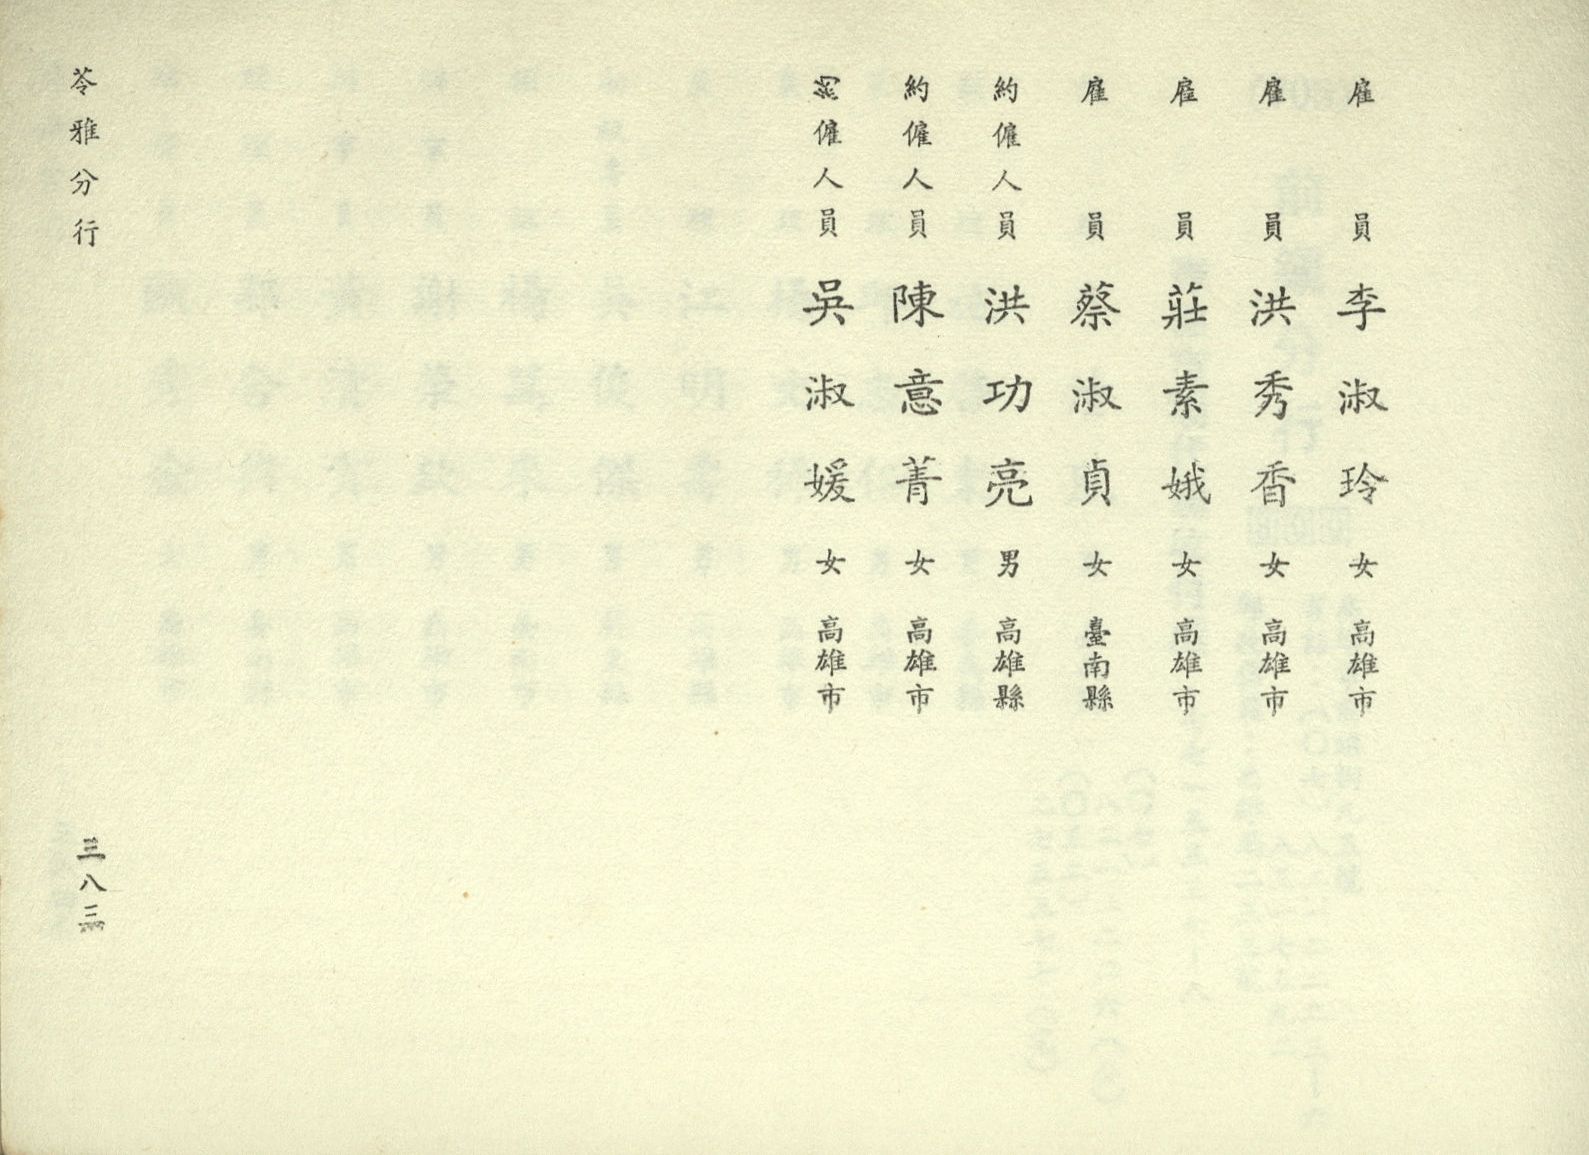 雇員 李淑玲 女 高雄市
雇員 洪秀香 女 高雄市
雇員 莊素娥 女 高雄市
雇員 蔡淑貞 女 臺南縣
約僱人員 洪功亮 男 高雄縣
約僱人員 陳意菁 女 高雄市
約僱人員 吳淑媛 女 高雄市
苓雅分行
三八三